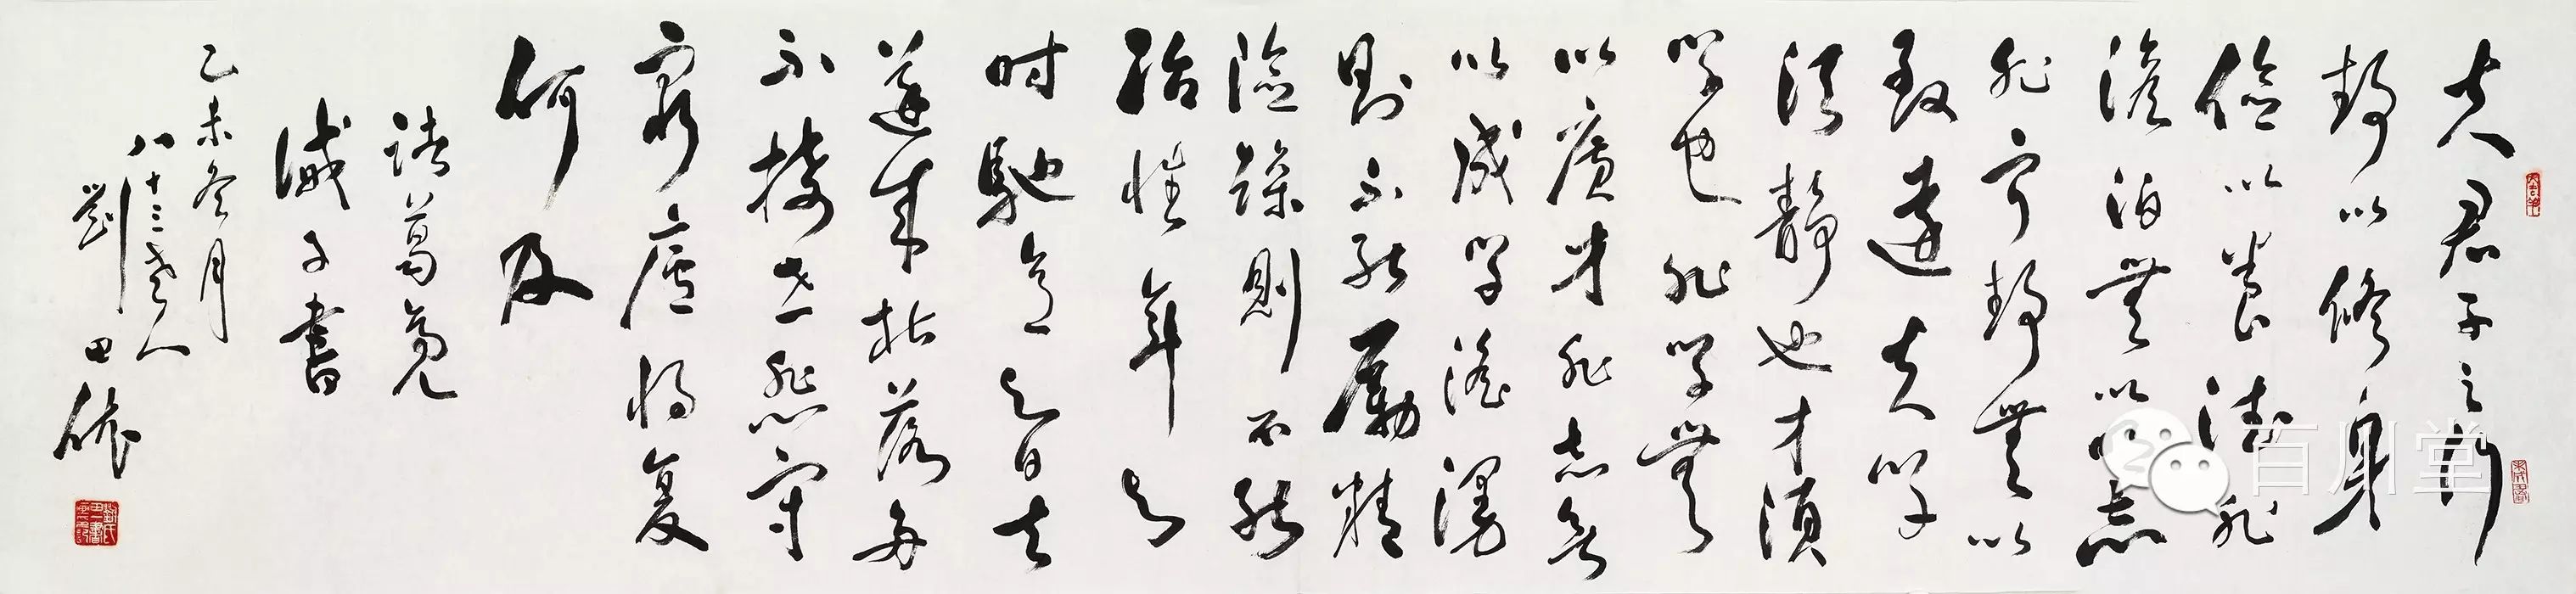 夫君子之行
静以修身
俭以养德非
澹泊無以明志
非寧静無以
致遠夫学
须静也才须
学也非学無
以廣才非志無
以成学滛漫
則不能勵精
險躁則不能
治性年与
时馳意与日去
遂成枯落多
不接世悲守
窮廬将复
何及
諸葛亮
诫子書
乙未冬月
八十三老人
劉田依
百川堂